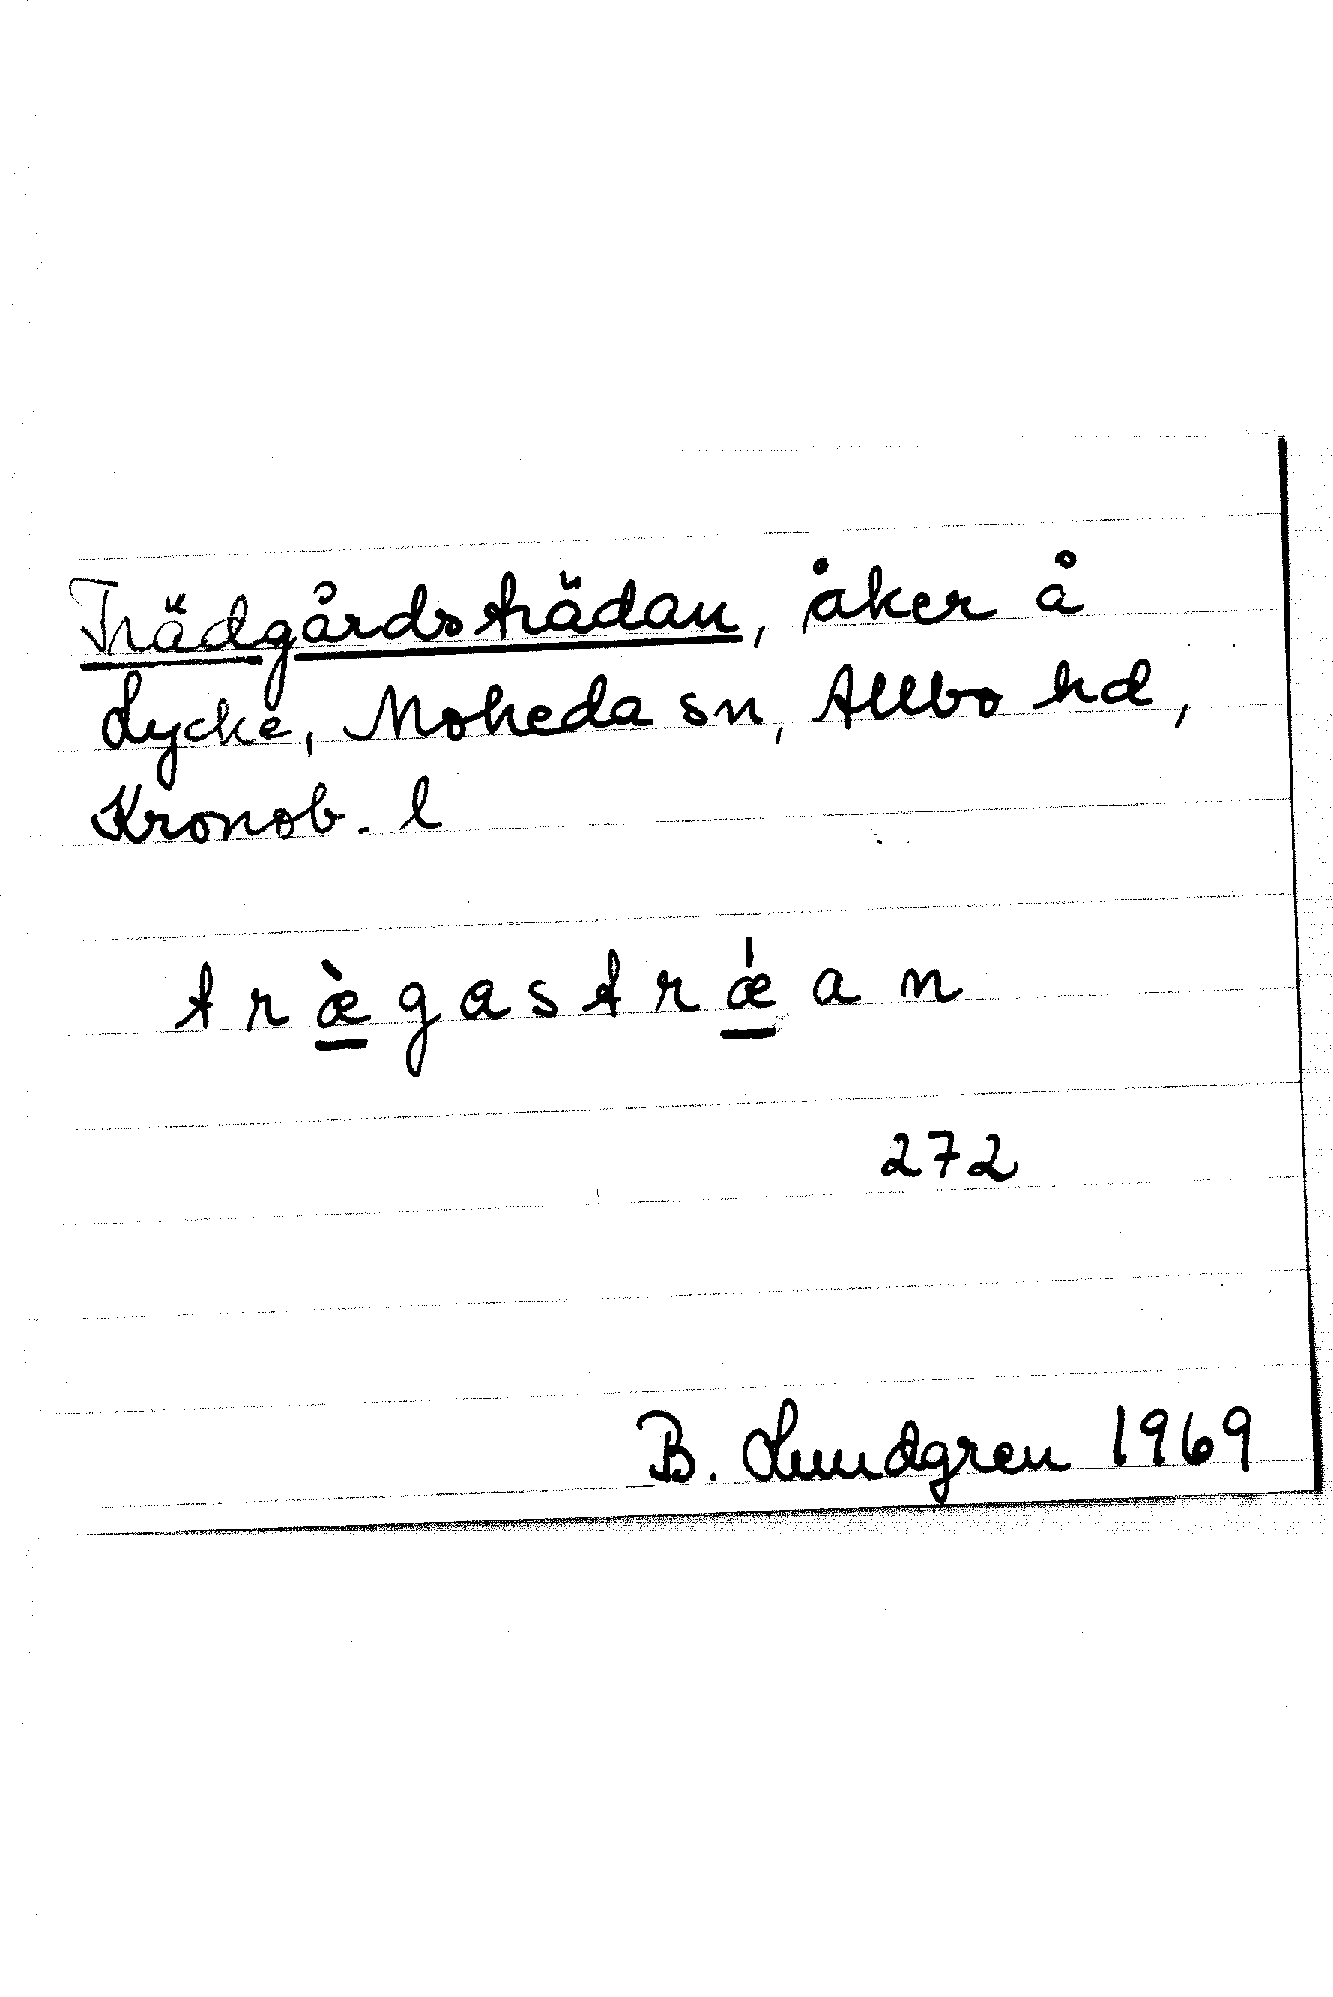 Trädgårdsträdan, åker å
Lycke, Moheda sn, Allbo hd,
Kronob. l
træ̀gastrǽan
272
B. Lundgren 1969